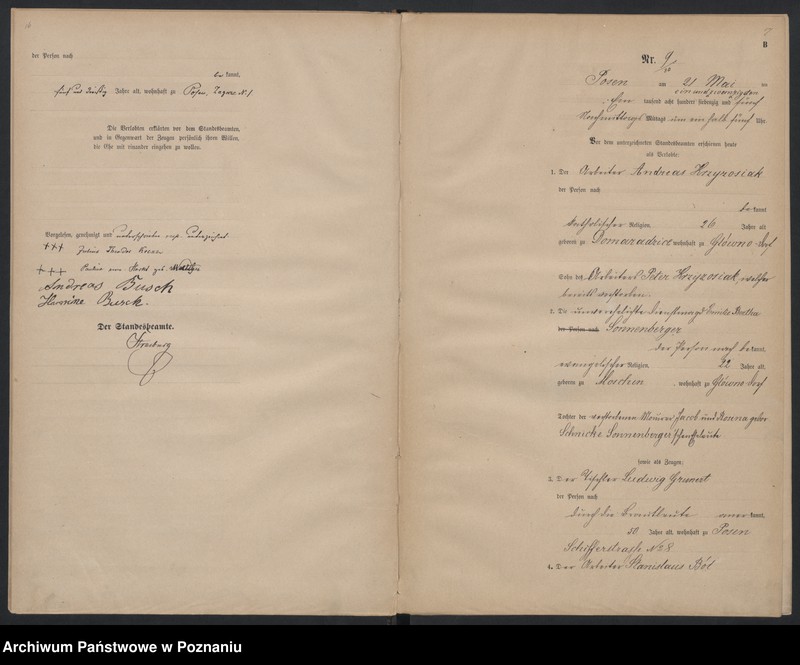 der Person nach
be kannt,
fünf und dreißig Jahre alt, wohnhaft zu Posen
Die Verlobten erklärten vor dem Standesbeamten,
und in Gegenwart der Zeugen persönlich ihren Willen,
die Ehe mit einander eingehen zu wollen.
Vorgelesen, genehmigt und unterschrieben
+++ Julius Theodor
+++ Pauline
Andreas Busch
Busch
Der Standesbeamte.
B
Nr. 9
Posen am 21 Mai
einundzwanzigsten
Ein tausend acht hundert siebenzig und fünf
Nachmittags Mittags um ein halb fünf Uhr.
Vor dem unterzeichneten Standesbeamten erschienen heute
als Verlobte:
1. Der Arbeiter Andreas Krzyzosiak
der Person nach
bekannt
katholischer Religion, 26 Jahre alt
geboren zu Domaradzice wohnhaft zu Glowno Dorf
Sohn des Arbeiters Peter Krzyzosiak, welcher
bereits verstorben.
2. Die unverehelichte Dienstmagd Emilie
der Person nach Sonnenberger
der Person nach be kannt,
evangelischer Religion, 22 Jahre alt,
geboren zu Moschin, wohnhaft zu Glowno Dorf
Tochter der verstorbenen Maurer Jacob und Rosina geb
Schmicke Sonnenberger
sowie als Zeugen:
3. Der Tischler Ludwig Grunert
der Person nach
durch die Brautleute aner kannt,
50 Jahre alt, wohnhaft zu Posen
Schifferstraße No 8
4. Der Arbeiter Stanislaus
Archiwum Państwowe w Poznaniu